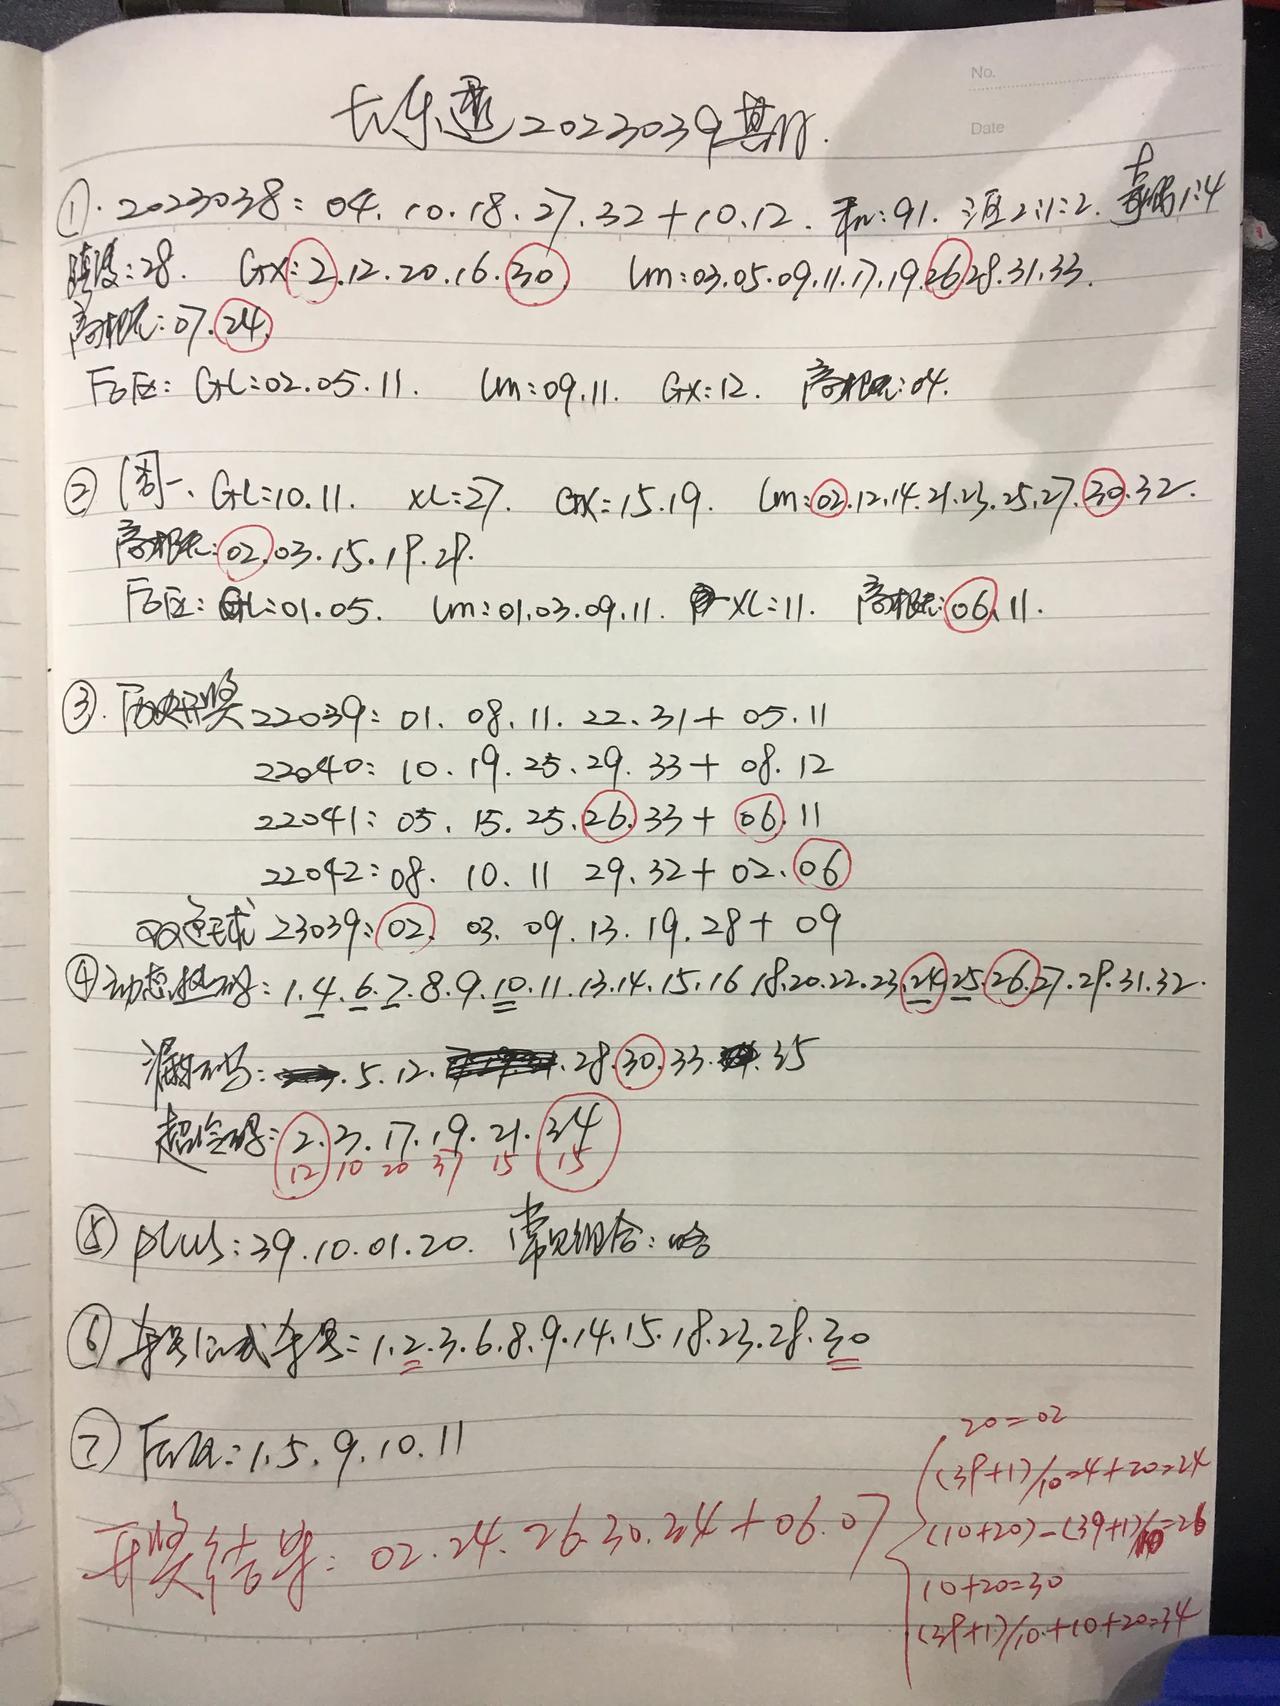 No.
Date
大乐透2023039期.
①. 2023038: 04. 10. 18. 27. 32 + 10. 12. 和: 91. 三区2:1:2. 奇偶1:4
跨度: 28. GX: 2. 12. 20. 16. 30 Lm: 03. 05. 09. 11. 17. 19. 26. 28. 31. 33.
高概: 07. 24.
后区: GL: 02. 05. 11. Lm: 09. 11. GX: 12. 高概: 04.
② 周一、GL: 10. 11. XL: 27. GX: 15. 19. Lm: 02. 12. 14. 21. 23. 25. 27. 30. 32.
高概: 02. 03. 15. 19. 29.
后区: GL: 01. 05. Lm: 01. 03. 09. 11. XL: 11. 高概: 06. 11.
③. 历史开奖 22039: 01. 08. 11. 22. 31 + 05. 11
22040: 10. 19. 25. 29. 33 + 08. 12
22041: 05. 15. 25. 26. 33 + 06. 11
22042: 08. 10. 11 29. 32 + 02. 06
色球 23039: 02. 03. 09. 13. 19. 28 + 09
④ 动态热码: 1. 4. 6. 7. 8. 9. 10. 11. 13. 14. 15. 16 18. 20. 22. 23. 24. 25. 26. 27. 29. 31. 32.
温码: . 5. 12. . 28. 30. 33. . 35
超冷码: 2. 3. 17. 19. 21. 34
12 10 20 37 15 15
⑤ plus: 39. 10. 01. 20. 常见组合: 略
⑥ : 1. 2. 3. 6. 8. 9. 14. 15. 18. 23. 28. 30
⑦ 后区: 1. 5. 9. 10. 11
开奖结果: 02. 24. 26. 30. 34 + 06. 07
20=02
(39+1)/10=4+20=24
(10+20)-(39+1)/10=26
10+20=30
(39+1)/10+10+20=34